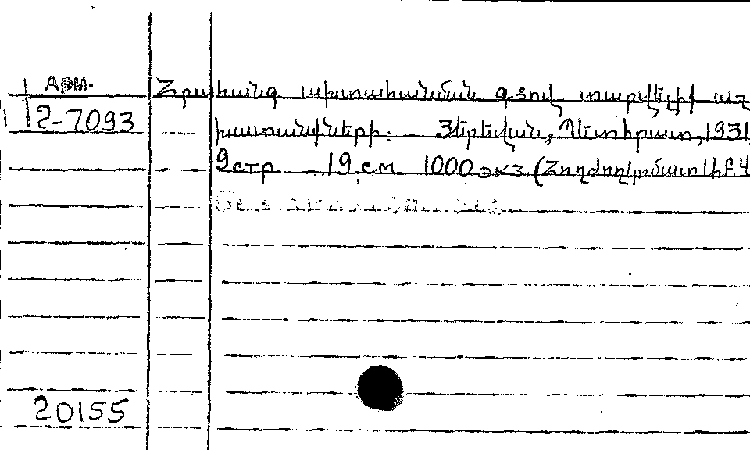 АРМ.
12-7093
Հրահանգ ախտահանման գծով տարվելիք աշ
խատանքների: — Յերեվան, Պետհրատ, 1931
9 стр. 19 см. 1000 экз (Հողժողկոմատ
20155